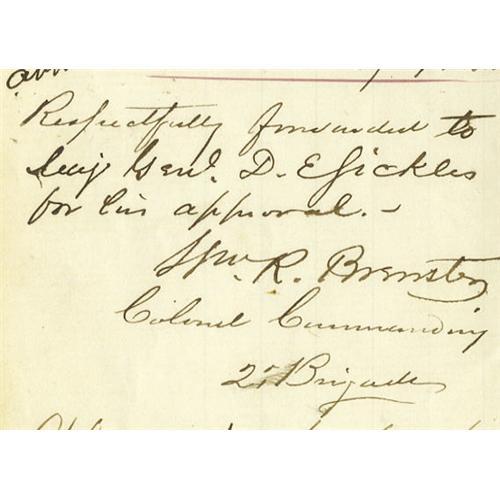 Respectfully forwarded to
Maj Genl. D. E Sickles
for his approval. –
Wm. R. Brewster
Colonel Commanding
2d Brigade